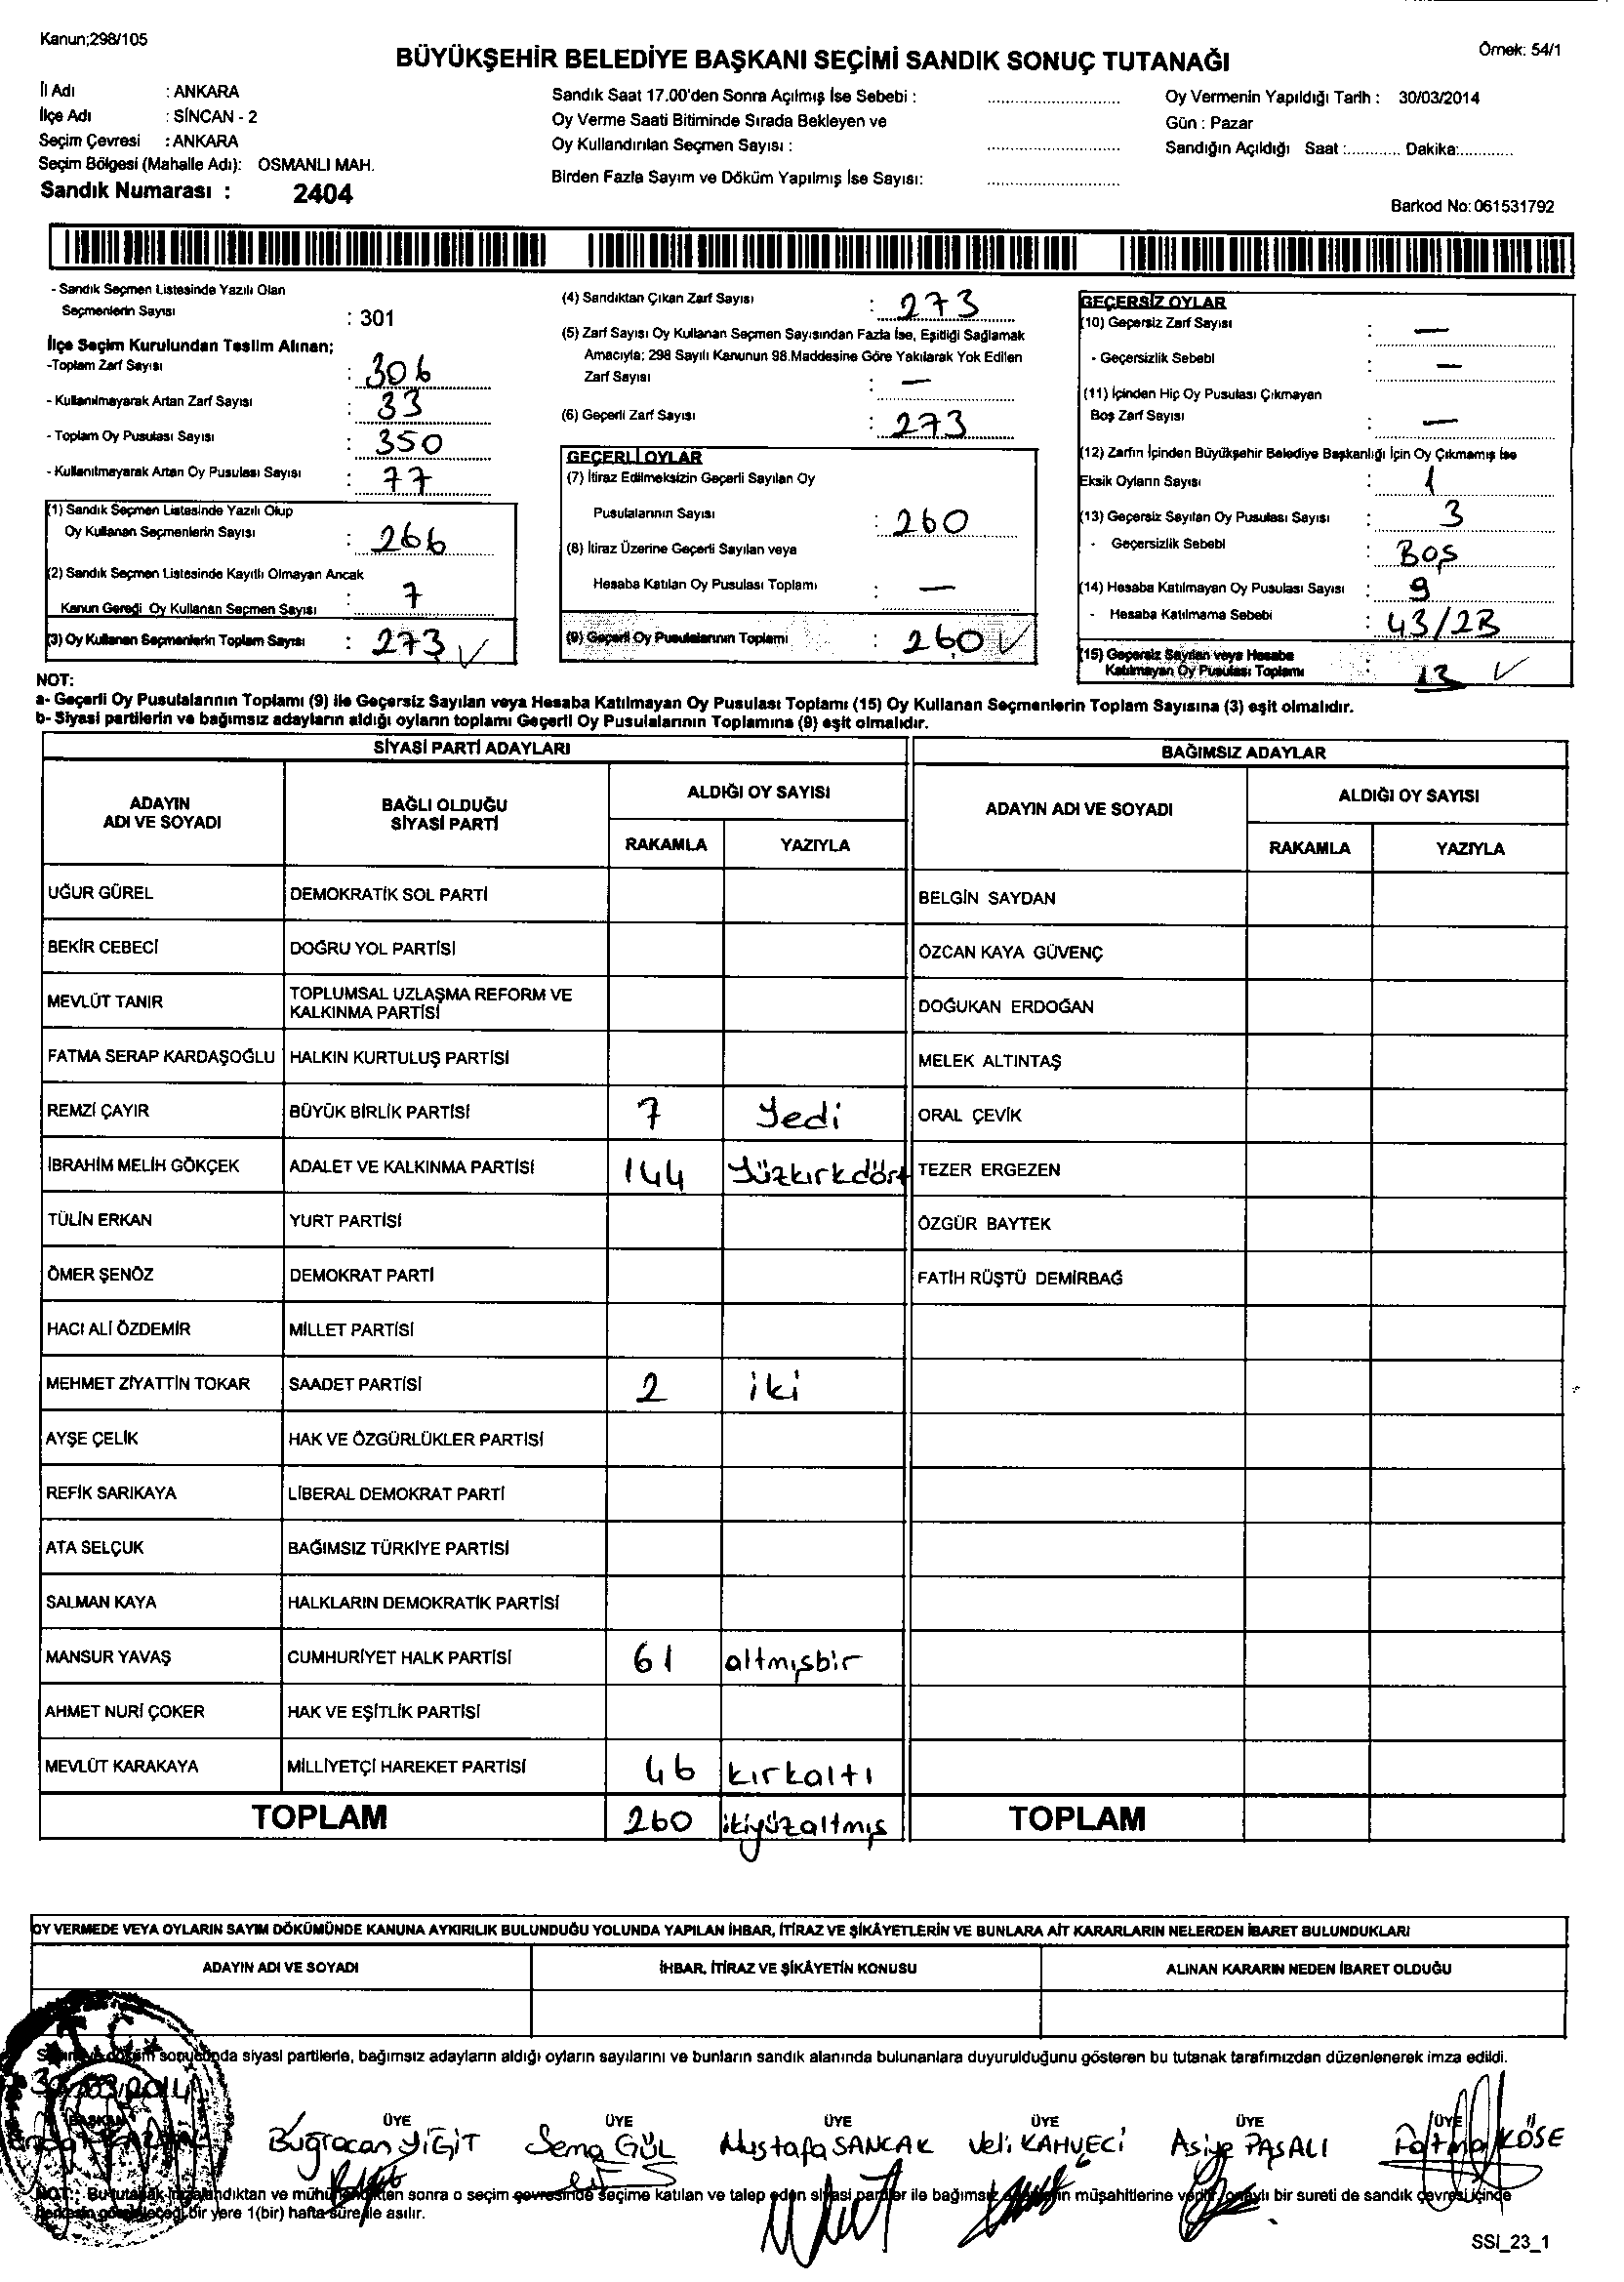 Kanun;298/105
Örnek: 54/1
BÜYÜKŞEHİR BELEDİYE BAŞKANI SEÇİMİ SANDIK SONUÇ TUTANAĞI
İl Adı : ANKARA
İlçe Adı : SİNCAN - 2
Seçim Çevresi : ANKARA
Seçim Bölgesi (Mahalle Adı): OSMANLI MAH.
Sandık Numarası : 2404
Sandık Saat 17.00'den Sonra Açılmış İse Sebebi :
Oy Verme Saati Bitiminde Sırada Bekleyen ve
Oy Kullandırılan Seçmen Sayısı :
Birden Fazla Sayım ve Döküm Yapılmış İse Sayısı:
Oy Vermenin Yapıldığı Tarih : 30/03/2014
Gün : Pazar
Sandığın Açıldığı Saat :........... Dakika:...........
Barkod No: 061531792
- Sandık Seçmen Listesinde Yazılı Olan
Seçmenlerin Sayısı : 301
İlçe Seçim Kurulundan Teslim Alınan;
-Toplam Zarf Sayısı : 306
- Kullanılmayarak Artan Zarf Sayısı : 33
- Toplam Oy Pusulası Sayısı : 350
- Kullanılmayarak Artan Oy Pusulası Sayısı : 77
(1) Sandık Seçmen Listesinde Yazılı Olup
Oy Kullanan Seçmenlerin Sayısı : 266
(2) Sandık Seçmen Listesinde Kayıtlı Olmayan Ancak
Kanun Gereği Oy Kullanan Seçmen Sayısı : 7
(3) Oy Kullanan Seçmenlerin Toplam Sayısı : 273 ✓
(4) Sandıktan Çıkan Zarf Sayısı : 273
(5) Zarf Sayısı Oy Kullanan Seçmen Sayısından Fazla İse, Eşitliği Sağlamak
Amacıyla; 298 Sayılı Kanunun 98.Maddesine Göre Yakılarak Yok Edilen
Zarf Sayısı : —
(6) Geçerli Zarf Sayısı : 273
GEÇERLİ OYLAR
(7) İtiraz Edilmeksizin Geçerli Sayılan Oy
Pusulalarının Sayısı : 260
(8) İtiraz Üzerine Geçerli Sayılan veya
Hesaba Katılan Oy Pusulası Toplamı : —
(9) Geçerli Oy Pusulalarının Toplamı : 260 ✓
GEÇERSİZ OYLAR
(10) Geçersiz Zarf Sayısı : —
- Geçersizlik Sebebi : —
(11) İçinden Hiç Oy Pusulası Çıkmayan
Boş Zarf Sayısı : —
(12) Zarfın İçinden Büyükşehir Belediye Başkanlığı İçin Oy Çıkmamış İse
Eksik Oyların Sayısı : 1
(13) Geçersiz Sayılan Oy Pusulası Sayısı : 3
- Geçersizlik Sebebi : Boş
(14) Hesaba Katılmayan Oy Pusulası Sayısı : 9
- Hesaba Katılmama Sebebi : 43/2B
(15) Geçersiz Sayılan veya Hesaba
Katılmayan Oy Pusulası Toplamı : 13 ✓
NOT:
a- Geçerli Oy Pusulalarının Toplamı (9) ile Geçersiz Sayılan veya Hesaba Katılmayan Oy Pusulası Toplamı (15) Oy Kullanan Seçmenlerin Toplam Sayısına (3) eşit olmalıdır.
b- Siyasi partilerin ve bağımsız adayların aldığı oyların toplamı Geçerli Oy Pusulalarının Toplamına (9) eşit olmalıdır.
SİYASİ PARTİ ADAYLARI
ADAYIN
ADI VE SOYADI
BAĞLI OLDUĞU
SİYASİ PARTİ
ALDIĞI OY SAYISI
RAKAMLA YAZIYLA
UĞUR GÜREL DEMOKRATİK SOL PARTİ
BEKİR CEBECİ DOĞRU YOL PARTİSİ
MEVLÜT TANIR TOPLUMSAL UZLAŞMA REFORM VE
KALKINMA PARTİSİ
FATMA SERAP KARDAŞOĞLU HALKIN KURTULUŞ PARTİSİ
REMZİ ÇAYIR BÜYÜK BİRLİK PARTİSİ 7 Yedi
İBRAHİM MELİH GÖKÇEK ADALET VE KALKINMA PARTİSİ 144 Yüzkırkdört
TÜLİN ERKAN YURT PARTİSİ
ÖMER ŞENÖZ DEMOKRAT PARTİ
HACI ALİ ÖZDEMİR MİLLET PARTİSİ
MEHMET ZİYATTİN TOKAR SAADET PARTİSİ 2 iki
AYŞE ÇELİK HAK VE ÖZGÜRLÜKLER PARTİSİ
REFİK SARIKAYA LİBERAL DEMOKRAT PARTİ
ATA SELÇUK BAĞIMSIZ TÜRKİYE PARTİSİ
SALMAN KAYA HALKLARIN DEMOKRATİK PARTİSİ
MANSUR YAVAŞ CUMHURİYET HALK PARTİSİ 61 altmışbir
AHMET NURİ ÇOKER HAK VE EŞİTLİK PARTİSİ
MEVLÜT KARAKAYA MİLLİYETÇİ HAREKET PARTİSİ 46 kırkaltı
TOPLAM 260 ikiyüzaltmış
BAĞIMSIZ ADAYLAR
ADAYIN ADI VE SOYADI
ALDIĞI OY SAYISI
RAKAMLA YAZIYLA
BELGİN SAYDAN
ÖZCAN KAYA GÜVENÇ
DOĞUKAN ERDOĞAN
MELEK ALTINTAŞ
ORAL ÇEVİK
TEZER ERGEZEN
ÖZGÜR BAYTEK
FATİH RÜŞTÜ DEMİRBAĞ
TOPLAM
OY VERMEDE VEYA OYLARIN SAYIM DÖKÜMÜNDE KANUNA AYKIRILIK BULUNDUĞU YOLUNDA YAPILAN İHBAR, İTİRAZ VE ŞİKÂYETLERİN VE BUNLARA AİT KARARLARIN NELERDEN İBARET BULUNDUKLARI
ADAYIN ADI VE SOYADI
İHBAR, İTİRAZ VE ŞİKÂYETİN KONUSU
ALINAN KARARIN NEDEN İBARET OLDUĞU
T.C.
sonucunda siyasi partilerle, bağımsız adayların aldığı oyların sayılarını ve bunların sandık alanında bulunanlara duyurulduğunu gösteren bu tutanak tarafımızdan düzenlenerek imza edildi.
30/03/2014
BAŞKAN ÜYE ÜYE ÜYE ÜYE ÜYE ÜYE
Buğracan YİĞİT Sema GÜL Mustafa SANCAK Veli KAHVECİ Asiye PAŞALI Fatma KÖSE
NOT: Bu tutanak sonra o seçim çevresinde seçime katılan ve talep eden siyasi partiler ile bağımsız müşahitlerine verilir, onaylı bir sureti de sandık çevresi içinde
bir yere 1(bir) hafta süre ile asılır.
SSI_23_1